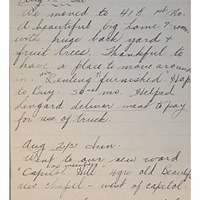 We moved to 41 E.
A beautiful big home 7 room
with huge back yard &
fruit trees. Thankful to
have a place to move around
in. Renting furnished Hope
to Buy. mo. Helped
deliver meat to pay
for use of truck.
Aug 2/31 Sun.
Went to our new ward
"Capitol Hill" 49 yrs old Beautiful
chapel - west of capitol.